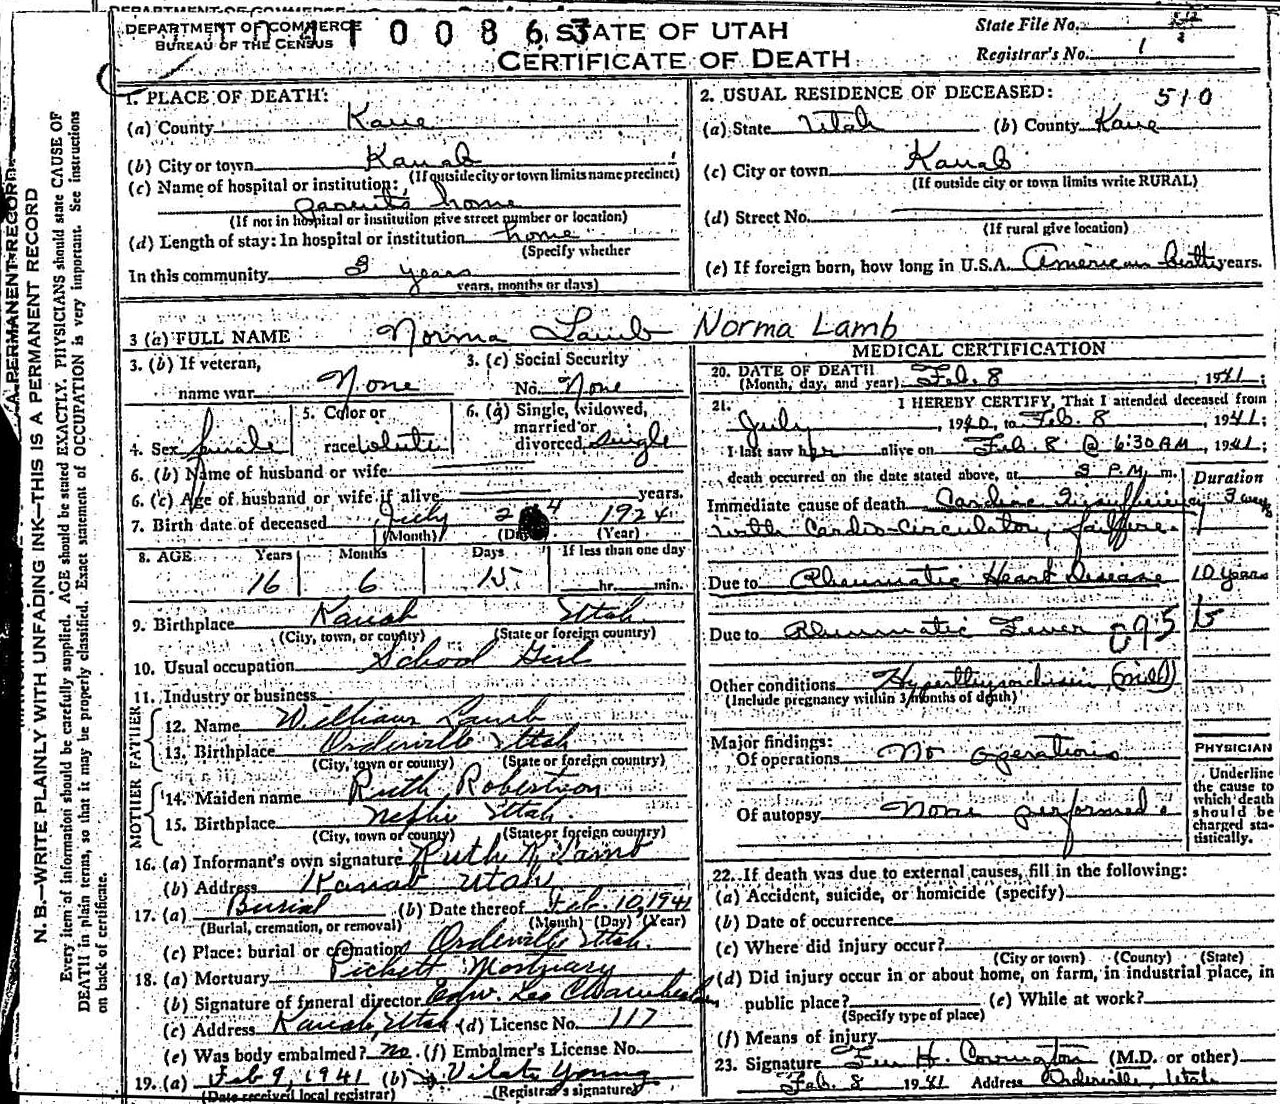 DEPARTMENT OF COMMERCE
BUREAU OF THE CENSUS
0 0 8 6 3
STATE OF UTAH
CERTIFICATE OF DEATH
State File No.
Registrar's No. 1
N. B.—WRITE PLAINLY WITH UNFADING INK—THIS IS A PERMANENT RECORD
Every item of information should be carefully supplied. AGE should be stated EXACTLY. PHYSICIANS should state CAUSE OF
DEATH in plain terms, so that it may be properly classified. Exact statement of OCCUPATION is very important. See instructions
on back of certificate.
1. PLACE OF DEATH:
(a) County Kane
(b) City or town Kanab
(If outside city or town limits name precinct)
(c) Name of hospital or institution:
parents home
(If not in hospital or institution give street number or location)
(d) Length of stay: In hospital or institution home
(Specify whether
In this community 3 years
years, months or days)
2. USUAL RESIDENCE OF DECEASED: 510
(a) State Utah (b) County Kane
(c) City or town Kanab
(If outside city or town limits write RURAL)
(d) Street No.
(If rural give location)
(e) If foreign born, how long in U.S.A. American Birth years.
3 (a) FULL NAME Norma Lamb Norma Lamb
3. (b) If veteran,
name war None
3. (c) Social Security
No. None
4. Sex female
5. Color or
race white
6. (a) Single, widowed,
married or
divorced single
6. (b) Name of husband or wife
6. (c) Age of husband or wife if alive years.
7. Birth date of deceased July 24 1924
(Month) (Day) (Year)
8. AGE Years Months Days If less than one day
16 6 15 hr. min.
9. Birthplace Kanab Utah
(City, town, or county) (State or foreign country)
10. Usual occupation School Girl
11. Industry or business
FATHER
12. Name William Lamb
13. Birthplace Orderville Utah
(City, town or county) (State or foreign country)
MOTHER
14. Maiden name Ruth Robertson
15. Birthplace Nephi Utah.
(City, town or county) (State or foreign country)
16. (a) Informant's own signature Ruth R. Lamb
(b) Address Kanab Utah
17. (a) Burial (b) Date thereof Feb. 10, 1941
(Burial, cremation, or removal) (Month) (Day) (Year)
(c) Place: burial or cremation Orderville Utah.
18. (a) Mortuary Pickett Mortuary
(b) Signature of funeral director Edw. Leo Chamberlain
(c) Address Kanab, Utah (d) License No. 117
(e) Was body embalmed? No. (f) Embalmer's License No.
19. (a) Feb 9, 1941 (b) Vilate Young
(Date received local registrar) (Registrar's signature)
MEDICAL CERTIFICATION
20. DATE OF DEATH
(Month, day, and year) Feb. 8, 1941;
21. I HEREBY CERTIFY, That I attended deceased from
July, 1940, to Feb. 8 1941;
I last saw her alive on Feb. 8 @ 6:30 AM, 1941;
death occurred on the date stated above, at 3 P.M. m.
Duration
Immediate cause of death Cardiac Insufficiency 3
with Cardio-Circulatory failure.
Due to Rheumatic Heart Disease 10 years
Due to Rheumatic Fever 095
Other conditions Hyperthyroidism (mild)
(Include pregnancy within 3 months of death)
Major findings:
Of operations No operations
Of autopsy None performed
PHYSICIAN
Underline
the cause to
which death
should be
charged sta-
tistically.
22. If death was due to external causes, fill in the following:
(a) Accident, suicide, or homicide (specify)
(b) Date of occurrence
(c) Where did injury occur?
(City or town) (County) (State)
(d) Did injury occur in or about home, on farm, in industrial place, in
public place? (e) While at work?
(Specify type of place)
(f) Means of injury
23. Signature H. Covington (M.D. or other)
Feb. 8 1941 Address Orderville, Utah